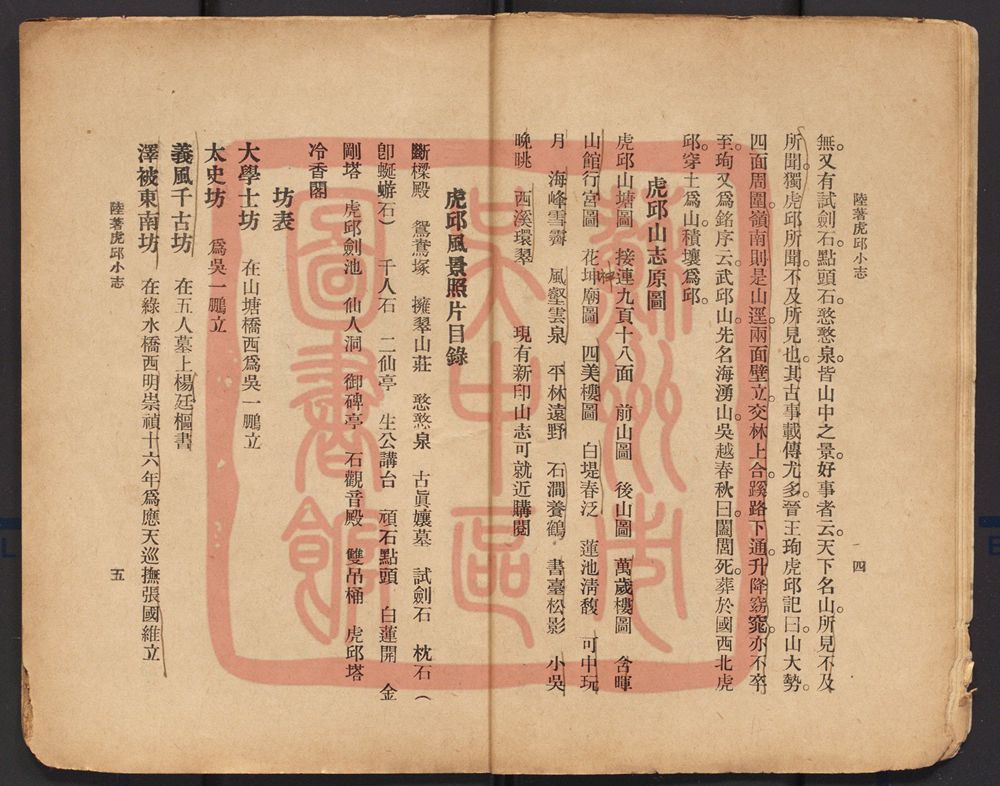 陸著虎邱小志
四
無又有試劍石。點頭石。憨憨泉。皆山中之景。好事者云。天下名山。所見不及
所聞。獨虎邱所聞不及所見也。其古事載傳尤多。晉王珣虎邱記曰。山大勢。
四面周圍。嶺南則是山逕。兩面壁立。交林上合。蹊路下通。升降窈窕。亦不卒
至。珣又爲銘序云。武邱山先名海湧山。吳越春秋曰。闔閭死。葬於國西北虎
邱。穿土爲山。積壤爲邱。
虎邱山志原圖
虎邱山塘圖 接連九百十八面 前山圖 後山圖 萬歲樓圖 含暉
山館行宮圖 花神廟圖 四美樓圖 白堤春泛 蓮池淸馥 可中玩
月 海峰雪霽 風壑雲泉 平林遠野 石澗養鶴 書臺松影 小吳
晚眺 西溪環翠 現有新印山志可就近購閱
虎邱風景照片目錄
斷樑殿 鴛鴦塚 擁翠山莊 憨憨泉 古眞孃墓 試劍石 枕石(
卽蜒蝣石) 千人石 二仙亭 生公講台 頑石點頭 白蓮開 金
剛塔 虎邱劍池 仙人洞 御碑亭 石觀音殿 雙吊桶 虎邱塔
冷香閣
坊表
大學士坊 在山塘橋西爲吳一鵬立
太史坊 爲吳一鵬立
義風千古坊 在五人墓上楊廷樞書
澤被東南坊 在綠水橋西明崇禎十六年爲應天巡撫張國維立
陸著虎邱小志
五
蘇州市
吳中區
圖書館